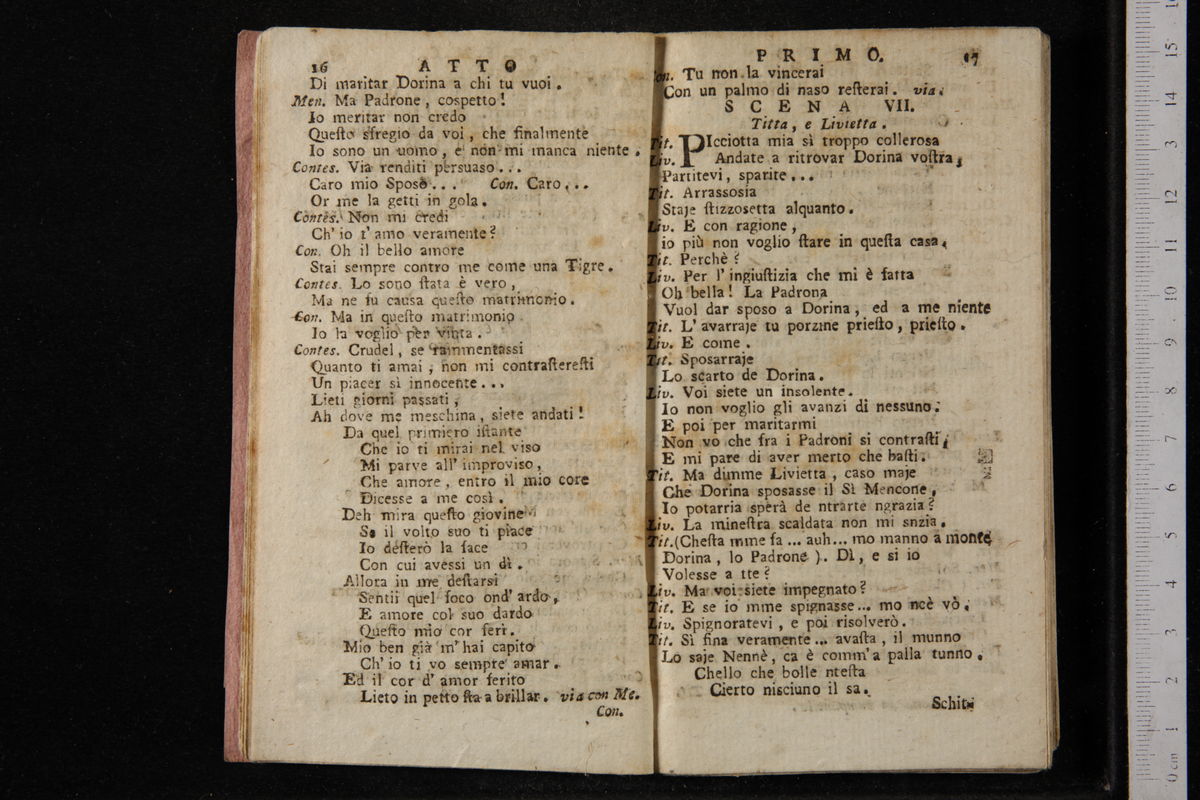 16 ATTO
Di maritar Dorina a chi tu vuoi.
Men. Ma Padrone, cospetto!
Io meritar non credo
Queſto sfregio da voi, che finalmente
Io sono un uomo, e non mi manca niente.
Contes. Via renditi persuaso...
Caro mio Sposo... Con. Caro...
Or me la getti in gola.
Contes. Non mi credi
Ch' io t' amo veramente?
Con. Oh il bello amore
Stai sempre contro me come una Tigre.
Contes. Lo sono ſtata è vero,
Ma ne fu causa queſto matrimonio.
Con. Ma in queſto matrimonio
Io la voglio per vinta.
Contes. Crudel, se rammentassi
Quanto ti amai, non mi contraſtereſti
Un piacer sì innocente...
Lieti giorni passati,
Ah dove me meschina, siete andati!
Da quel primiero iſtante
Che io ti mirai nel viso
Mi parve all' improviso,
Che amore, entro il mio core
Dicesse a me così.
Deh mira queſto giovine
Se il volto suo ti piace
Io deſterò la face
Con cui avessi un dì.
Allora in me deſtarsi
Sentii quel foco ond' ardo,
E amore col suo dardo
Queſto mio cor ferì.
Mio ben già m' hai capito
Ch' io ti vo sempre amar.
Ed il cor d' amor ferito
Lieto in petto ſta a brillar. via con Me.
Con.
PRIMO. 17
Con. Tu non la vincerai
Con un palmo di naso reſterai. via.
SCENA VII.
Titta, e Livietta.
Tit. PIcciotta mia sì troppo collerosa
Liv. Andate a ritrovar Dorina voſtra,
Partitevi, sparite...
Tit. Arrassosia
Staje ſtizzosetta alquanto.
Liv. E con ragione,
io più non voglio ſtare in queſta casa.
Tit. Perchè?
Liv. Per l' ingiuſtizia che mi è fatta
Oh bella! La Padrona
Vuol dar sposo a Dorina, ed a me niente
Tit. L' avarraje tu porzine prieſto, prieſto.
Liv. E come.
Tit. Sposarraje
Lo scarto de Dorina.
Liv. Voi siete un insolente.
Io non voglio gli avanzi di nessuno.
E poi per maritarmi
Non vo che fra i Padroni si contraſti,
E mi pare di aver merto che baſti.
Tit. Ma dimme Livietta, caso maje
Che Dorina sposasse il Sì Mencone,
Io potarria sperà de ntrarte ngrazia?
Liv. La mineſtra scaldata non mi snzia.
Tit. (Cheſta mme fa... auh... mo manno a monte
Dorina, lo Padrone). Dì, e si io
Volesse a tte?
Liv. Ma voi siete impegnato?
Tit. E se io mme spignasse... mo ncè vò.
Liv. Spignoratevi, e poi risolverò.
Tit. Sì fina veramente... avaſta, il munno
Lo saje Nennè, ca è comm' a palla tunno.
Chello che bolle nteſta
Cierto nisciuno il sa.